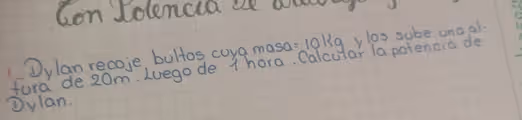 Con Potencia de
1- Dylan recoje bultos cuya masa = 10Kg y los sube una al-
tura de 20m. Luego de 1 hora. Calcular la potencia de
Dylan.